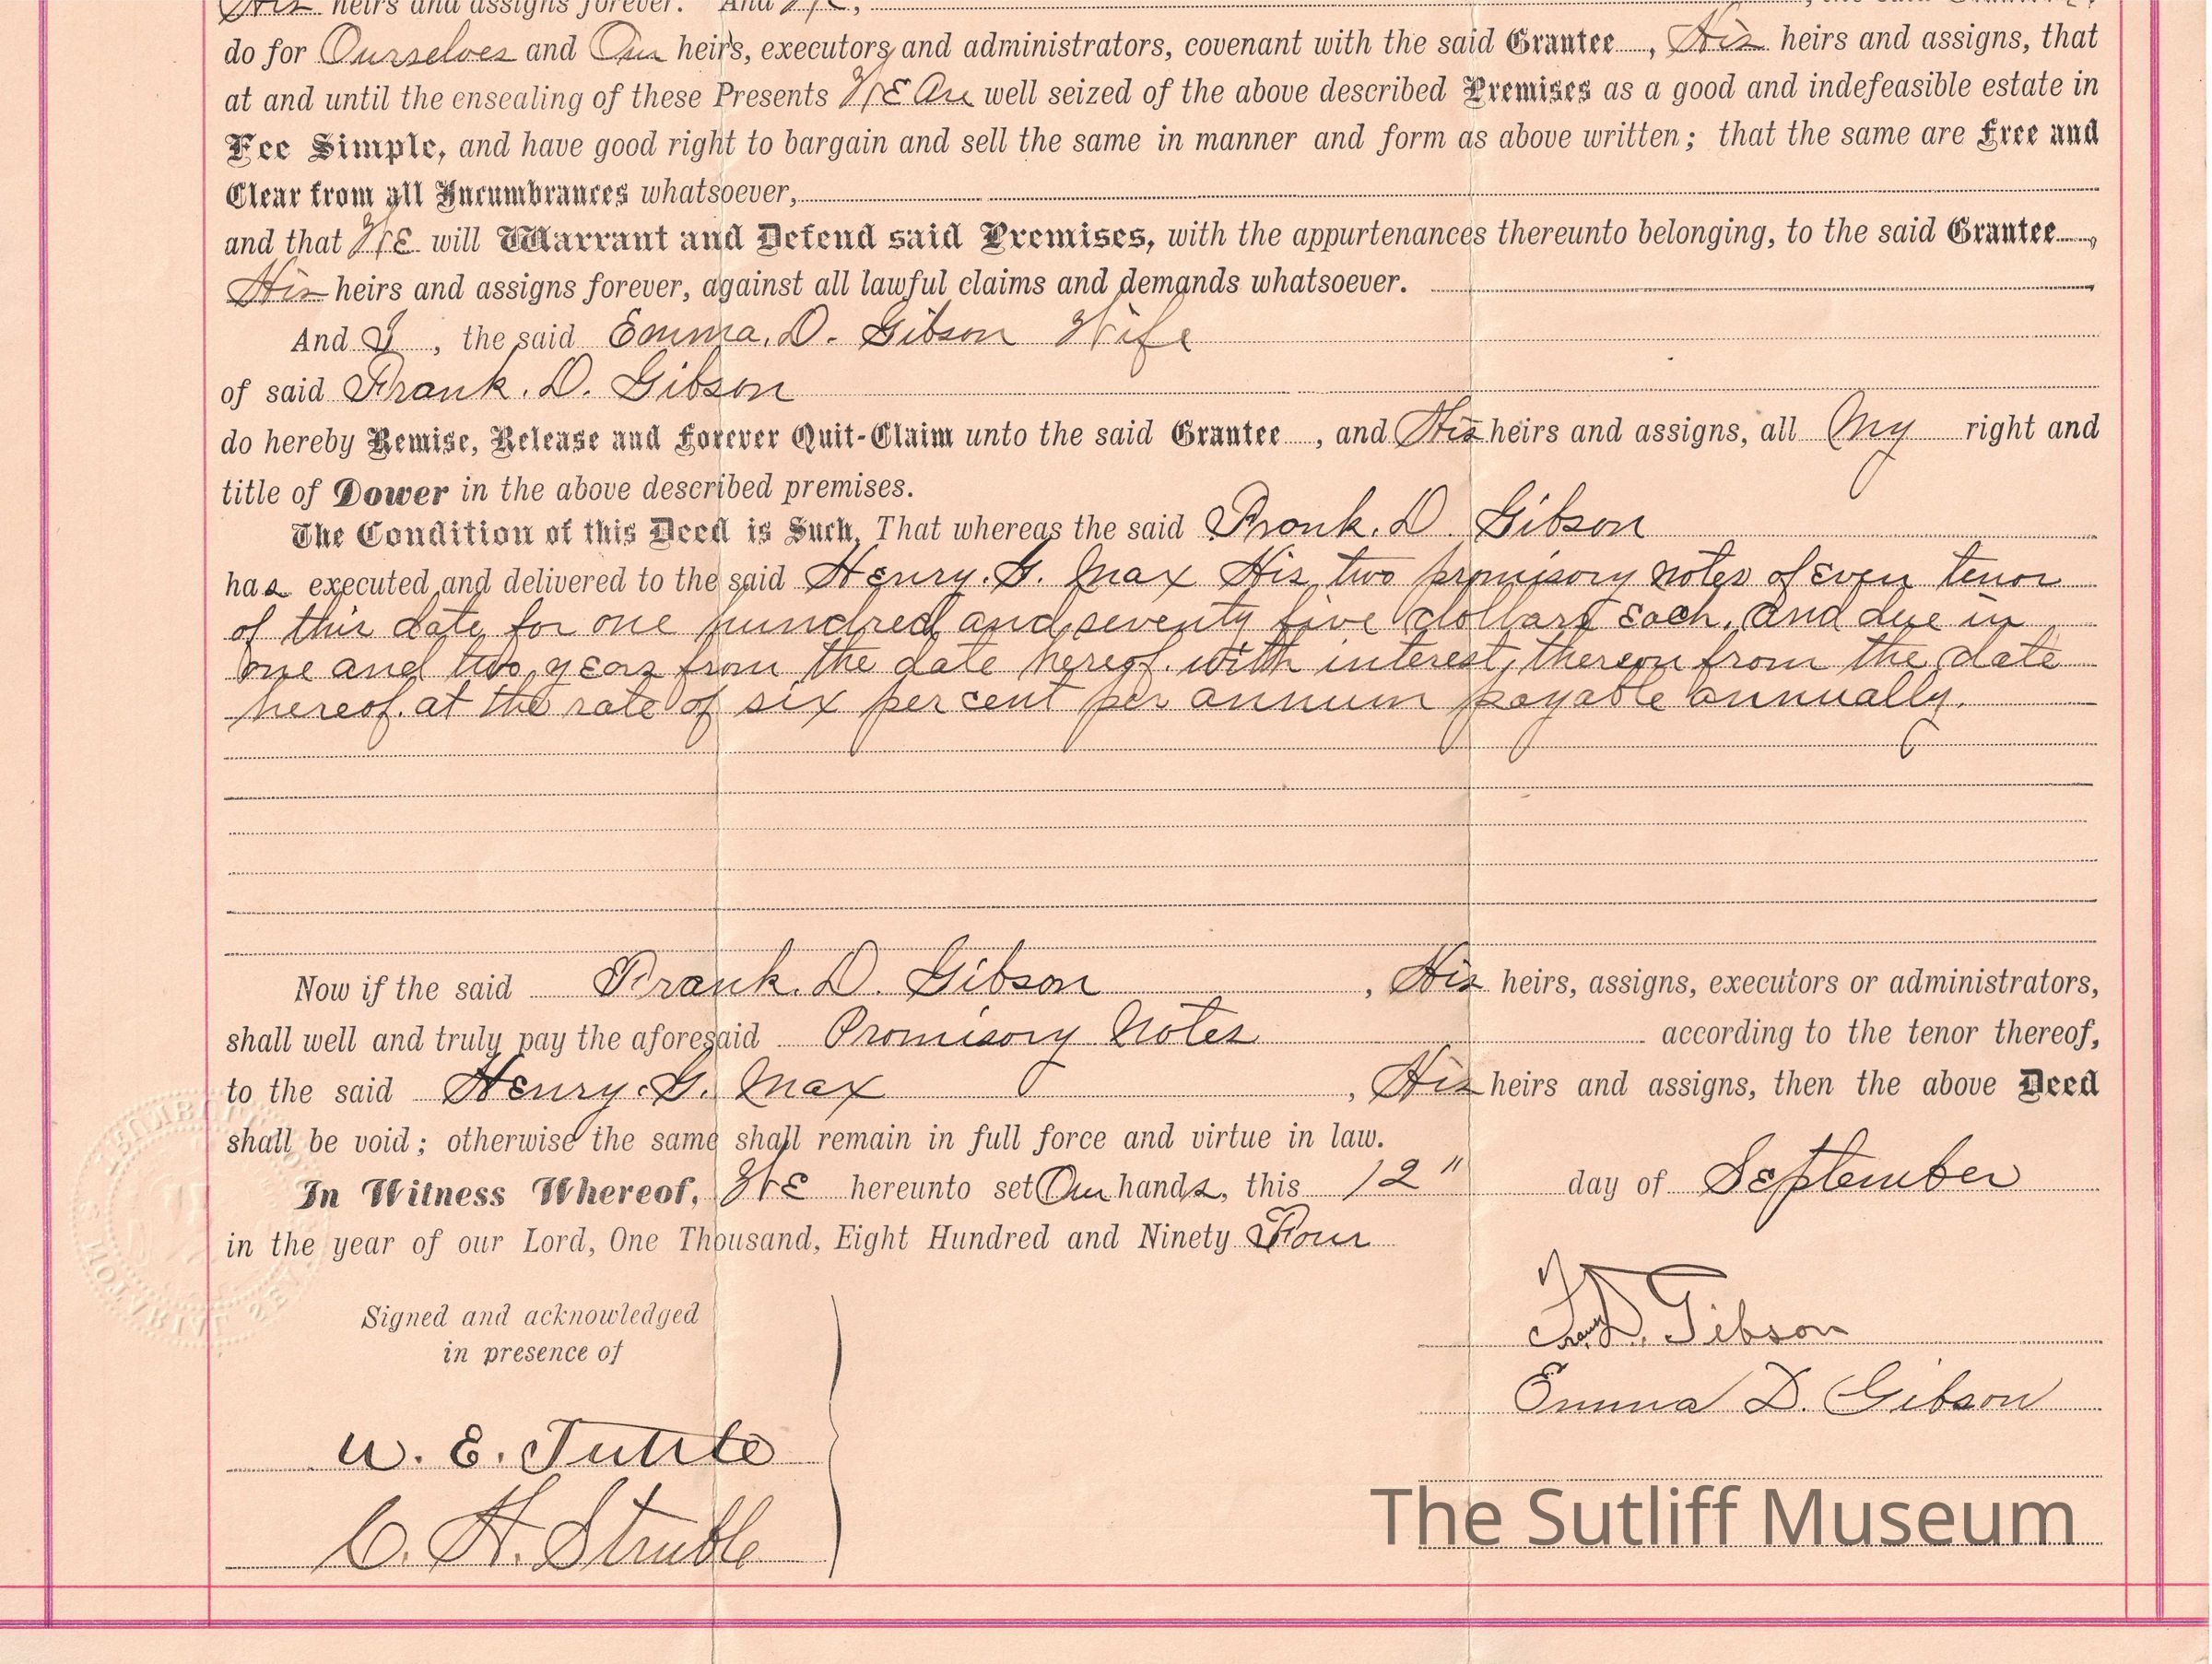 His heirs and assigns forever. And We,
do for Ourselves and Our heirs, executors and administrators, covenant with the said Grantee, His heirs and assigns, that
at and until the ensealing of these Presents WE Are well seized of the above described Premises as a good and indefeasible estate in
Fee Simple, and have good right to bargain and sell the same in manner and form as above written; that the same are Free and
Clear from all Incumbrances whatsoever,
and that WE will Warrant and Defend said Premises, with the appurtenances thereunto belonging, to the said Grantee,
His heirs and assigns forever, against all lawful claims and demands whatsoever.
And I, the said Emma. D. Gibson Wife
of said Frank. D. Gibson
do hereby Remise, Release and Forever Quit-Claim unto the said Grantee, and His heirs and assigns, all My right and
title of Dower in the above described premises.
The Condition of this Deed is Such, That whereas the said Frank. D. Gibson
has executed and delivered to the said Henry. G. Max His two promisory notes of even tenor
of this date for one hundred and seventy five dollars Each, and due in
one and two years from the date hereof. with interest thereon from the date
hereof. at the rate of six per cent per annum payable annually.
Now if the said Frank. D. Gibson, His heirs, assigns, executors or administrators,
shall well and truly pay the aforesaid Promisory Notes according to the tenor thereof,
to the said Henry. G. Max, His heirs and assigns, then the above Deed
shall be void; otherwise the same shall remain in full force and virtue in law.
In Witness Whereof, WE hereunto set Our hands, this 12" day of September
in the year of our Lord, One Thousand, Eight Hundred and Ninety Four
Signed and acknowledged
in presence of
D. Gibson
Emma D. Gibson
W. E. Tuttle
C. H. Struble
The Sutliff Museum